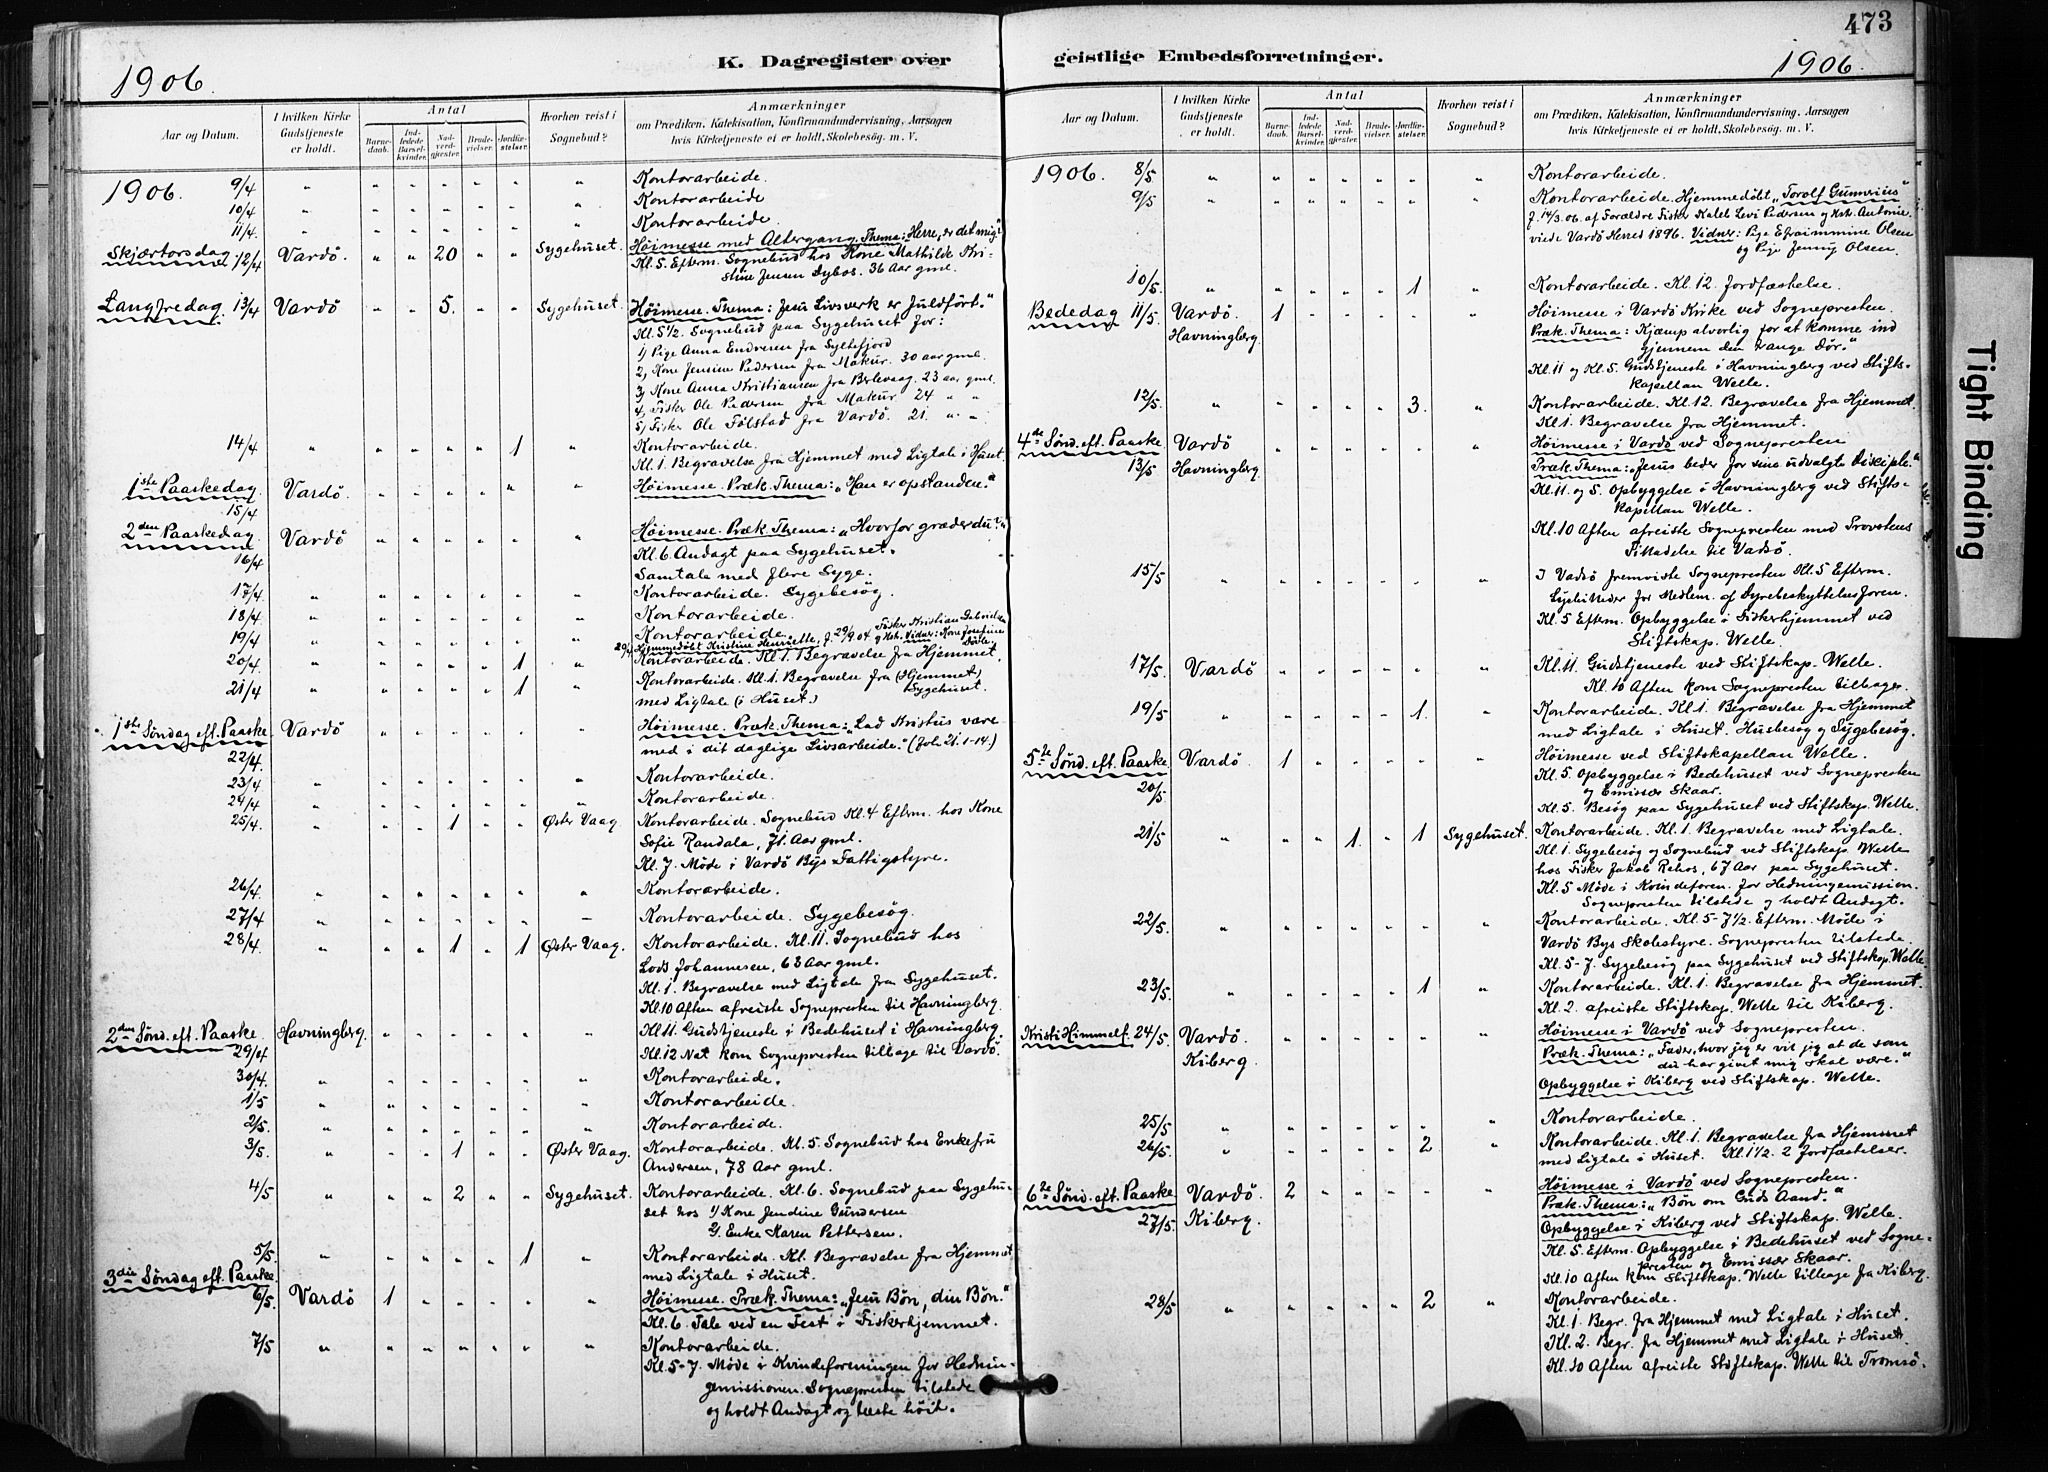 473
K. Dagregister over
geistlige Embedsforretninger.
1906.
1906.
Aar og Datum.
I hvilken Kirke Gudstjeneste er holdt.
Antal
Barnedaab.
Indledede Barselkvinder.
Nadverdgjester.
Brudevielser.
Jordfæstelser.
Hvorhen reist i Sognebud?
Anmærkninger
om Prædiken, Katekisation, Konfirmandundervisning, Aarsagen
hvis Kirketjeneste ei er holdt, Skolebesøg. m. V.
1906. 9/4 " " " " " " " Kontorarbeide.
10/4 " " " " " " " Kontorarbeide
11/4 " " " " " " " Kontorarbeide.
Skjærtorsdag 12/4 Vardö. " " 20 " " Sygehuset. Höimesse med Altergang. Thema: "Herre, er det mig?"
Kl. 5. Efterm. Sognebud hos Kone Mathilde Kri-
stine Jensen Dybos. 36 Aar gml.
Langfredag. 13/4 Vardö " " 5. " " Sygehuset. Höimesse. Thema: Jesu Livsverk er fuldfört."
Kl. 5 1/2. Sognebud paa Sygehuset for:
1) Pige Anna Endresen fra Syltefjord
2) Kone Jensine Pedersen fra Makur. 30 aar gml.
3) Kone Anna Kristiansen fra Berlevaag. 23 aar gml.
4) Fisker Ole Pedersen fra Makur. 24 " "
5) Fisker Ole Fölstad fra Vardö. 21 " "
14/4 " " " " " 1 " Kontorarbeide.
Kl. 1. Begravelse fra Hjemmet med Ligtale i Huset.
1ste Paaskedag. Vardö. " " " " " Höimesse. Præk. Thema: "Han er opstanden."
15/4
2den Paaskedag. Vardö " " " " " " Höimesse. Præk. Thema: "Hvorfor græder du?"
16/4 Kl. 6. Andagt paa Sygehuset.
Samtale med flere Syge.
17/4 " " " " " " " Kontorarbeide. Sygebesög.
18/4 " " " " " " " Kontorarbeide.
19/4 " " " " " " " Kontorarbeide. Fisker Kristian Gabrielsen
Hjemmedöbt Kristine Henriette, f. 29/9 04 og Hst. Vidner: Kone Josefine
20/4 " " " " " 1 " Kontorarbeide. Kl. 1. Begravelse fra Hjemmet.
21/4 " " " " " 1 " Kontorarbeide. Kl. 1. Begravelse fra (Hjemmet) Sygehuset.
med Ligtale (i Huset.)
1ste Söndag eft. Paaske. Vardö " " " " " " Höimesse. Præk. Thema: "Lad Kristus være
22/4. med i dit daglige Livsarbeide." (Joh. 21. 1-14.)
23/4 " " " " " " " Kontorarbeide.
24/4 " " " " " " " Kontorarbeide.
25/4. " " " 1 " " Øster Vaag. Kontorarbeide. Sognebud Kl. 4 Efterm. hos Kone
Sofie Randala, 71. Aar gml.
Kl. 7. Möde i Vardö Bys Fattigstyre.
26/4. " " " " " " " Kontorarbeide.
27/4 " " " " " " – Kontorarbeide. Sygebesög.
28/4. " " " 1 " 1 Øster Vaag. Kontorarbeide. Kl. 11. Sognebud hos
Lods Johannesen, 63 Aar gml.
Kl. 1. Begravelse med Ligtale fra Sygehuset.
Kl. 10 Aften afreiste Sognepresten til Havningberg.
2den Sönd. eft. Paaske Havningberg. " " " " " " Kl. 11. Gudstjeneste i Bedehuset i Havningberg.
29/4 Kl. 12 Nat kom Sognepresten tilbage til Vardö.
30/4. " " " " " " " Kontorarbeide.
1/5 " " " " " " " Kontorarbeide.
2/5. " " " " " " " Kontorarbeide.
3/5. " " " 1 " " Øster Vaag. Kontorarbeide. Kl. 5. Sognebud hos Enkefru
Andersen, 78 Aar gml.
4/5 " " " 2 " " Sygehuset. Kontorarbeide. Kl. 6. Sognebud paa Sygehu-
set hos 1) Kone Jendine Gundersen
2. Enke Karen Pettersen.
5/5. " " " " " 1 " Kontorarbeide. Kl. Begravelse fra Hjemmet
med Ligtale i Huset.
3die Söndag eft. Paaske
6/5. Vardö 1 " " " " " Höimesse. Præk. Thema: "Jesu Bön, din Bön."
Kl. 6. Tale ved en Fest i Fiskerhjemmet.
7/5 " " " " " " " Kontorarbeide.
Kl. 5-7. Möde i Kvindeforeningen for Hednin-
gemissionen. Sognepresten tilstede
og holdt Andagt og læste höit.
Aar og Datum.
I hvilken Kirke Gudstjeneste er holdt.
Antal
Barnedaab.
Indledede Barselkvinder.
Nadverdgjester.
Brudevielser.
Jordfæstelser.
Hvorhen reist i Sognebud?
Anmærkninger
om Prædiken, Katekisation, Konfirmandundervisning, Aarsagen
hvis Kirketjeneste ei er holdt, Skolebesøg. m. V.
1906. 8/5 " " " " " " " Kontorarbeide.
9/5 " " " " " " " Kontorarbeide. Hjemmedöbt "Torolf Gunerius"
f. 14/3. 06. af Forældre Fisker Kalel Levi Pedersen og Hst. Antonie.
viede Vardö Herred 1896. Vidner: Pige Efraimmine Olsen
og Pige Jenny Olsen.
10/5. " " " " " 1 " Kontorarbeide. Kl. 12. Jordfæstelse.
Bededag 11/5. Vardö. 1 " " " " " Höimesse i Vardö Kirke ved Sognepresten.
Havningberg. Præk. Thema: Kjæmp alvorlig for at komme ind
gjennem den trange Dör."
Kl. 11 og Kl. 5. Gudstjeneste i Havningberg ved Stifts-
kapellan Welle.
12/5. " " " " " 3. " Kontorarbeide. Kl. 12. Begravelse fra Hjemmet.
Kl. 1. Begravelse fra Hjemmet.
4de Sönd. eft. Paaske Vardö " " " " " " Höimesse i Vardö ved Sognepresten
13/5. Havningberg. Præk. Thema: "Jesus beder for sine udvalgte Disciple."
Kl. 11. og 5. Opbyggelse i Havningberg ved Stifts-
kapellan Welle.
Kl. 10 Aften afreiste Sognepresten med Provstens
Tilladelse til Vadsö.
15/5 " " " " " " " I Vadsö fremviste Sognepresten Kl. 5 Efterm.
Lysbilleder for Medlem. af Dyrebeskyttelsesforen.
Kl. 5 Efterm. Opbyggelse i Fiskerhjemmet ved
Stiftskap. Welle
17/5. Vardö " " " " " " Kl. 11. Gudstjeneste ved Stiftskap. Welle.
Kl. 10 Aften kom Sognepresten tilbage.
19/5 " " " " " 1. " Kontorarbeide. Kl. 1. Begravelse fra Hjemmet
med Ligtale i Huset. Husbesög og Sygebesög.
5te Sönd. eft. Paaske Vardö. 1 " " " " " Höimesse ved Stiftskapellan Welle.
20/5. Kl. 5. Opbyggelse i Bedehuset ved Sognepresten
og Emissær Skaar.
Kl. 5. Besög paa Sygehuset ved Stiftskap. Welle.
21/5 " " " 1. " 1 Sygehuset. Kontorarbeide. Kl. 1. Begravelse med Ligtale.
Kl. 1. Sygebesög og Sognebud ved Stiftskap. Welle
hos Fisker Jakob Rehos, 67 Aar paa Sygehuset.
Kl. 5 Möde i Kvindeforen. for Hedningemission.
Sognepresten tilstede og holdt Andagt.
22/5. " " " " " " " Kontorarbeide. Kl. 5-7 1/2. Efterm. Möde i
Vardö Bys Skolestyre. Sognepresten tilstede.
Kl. 5-7. Sygebesög paa Sygehuset ved Stiftskap. Welle
23/5. " " " " " 1 " Kontorarbeide. Kl. 1. Begravelse fra Hjemmet.
Kl. 2. afreiste Stiftskap. Welle til Kiberg.
Kristi Himmelf. 24/5. Vardö. " Höimesse i Vardö ved Sognepresten.
Kiberg. Præk. Thema: "Fader, hvor jeg er vil jeg at de som
du har givet mig skal være."
Opbyggelse i Kiberg ved Stiftskap. Welle.
25/5 " " " " " " " Kontorarbeide.
26/5. " " " " " 2 " Kontorarbeide. Kl. 1. Begravelse fra Hjemmet
med Ligtale i Huset. Kl. 1 1/2. 2 Jordfæstelser.
6te Sönd. eft. Paaske Vardö. 2 " " " " " Höimesse i Vardö ved Sognepresten.
27/5. Kiberg. Præk. Thema: "Bön om Guds Aand."
Opbyggelse i Kiberg ved Stiftskap. Welle.
Kl. 5. Efterm. Opbyggelse i Bedehuset ved Sogne-
presten og Emissær Skaar.
Kl. 10 Aften kom Stiftskap. Welle tilbage fra Kiberg.
28/5 " " " " " 2 " Kontorarbeide.
Kl. 1. Begr. fra Hjemmet med Ligtale i Huset.
Kl. 2. Begr. fra Hjemmet med Ligtale i Huset.
Kl. 10 Aften afreiste Stiftskap. Welle til Tromsö.
Tight Binding